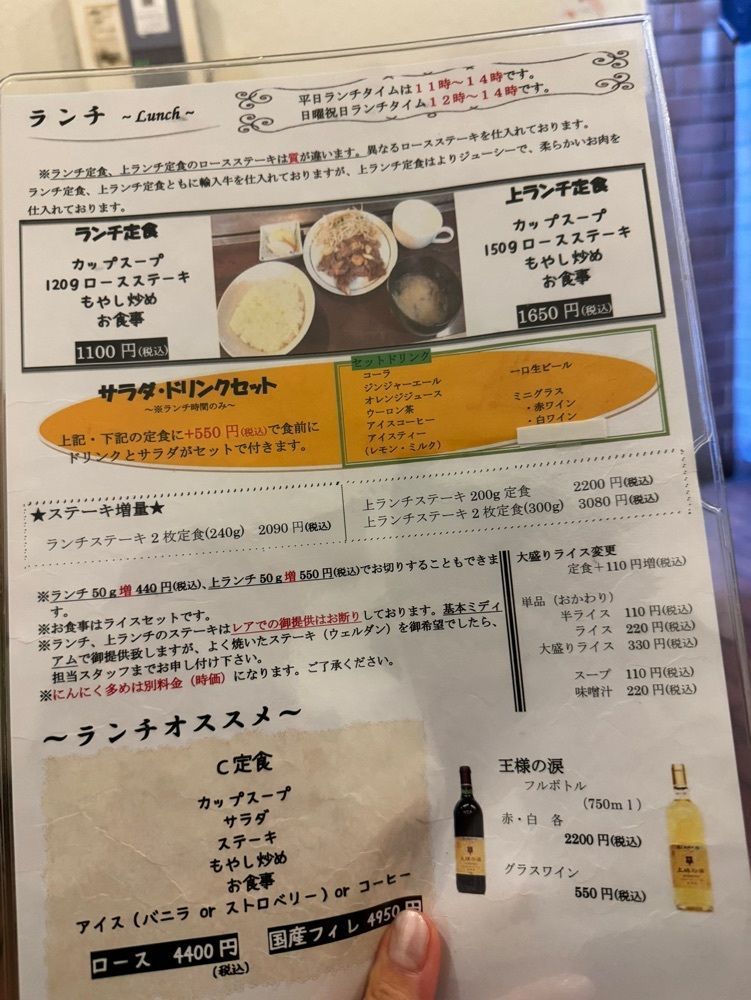 ランチ ~Lunch~
平日ランチタイムは11時～14時です。
日曜祝日ランチタイム12時～14時です。
※ランチ定食、上ランチ定食のロースステーキは質が違います。異なるロースステーキを仕入れております。
ランチ定食、上ランチ定食ともに輸入牛を仕入れておりますが、上ランチ定食はよりジューシーで、柔らかいお肉を
仕入れております。
ランチ定食
カップスープ
120gロースステーキ
もやし炒め
お食事
1100円(税込)
上ランチ定食
カップスープ
150gロースステーキ
もやし炒め
お食事
1650円(税込)
サラダ・ドリンクセット
～※ランチ時間のみ～
上記・下記の定食に+550円(税込)で食前に
ドリンクとサラダがセットで付きます。
セットドリンク
コーラ
ジンジャーエール
オレンジジュース
ウーロン茶
アイスコーヒー
アイスティー
(レモン・ミルク)
一口生ビール
ミニグラス
・赤ワイン
・白ワイン
★ステーキ増量★
ランチステーキ2枚定食(240g) 2090円(税込)
上ランチステーキ200g定食 2200円(税込)
上ランチステーキ2枚定食(300g) 3080円(税込)
※ランチ50g増440円(税込)、上ランチ50g増550円(税込)でお切りすることもできま
す。
※お食事はライスセットです。
※ランチ、上ランチのステーキはレアでの御提供はお断りしております。基本ミディ
アムで御提供致しますが、よく焼いたステーキ（ウェルダン）を御希望でしたら、
担当スタッフまでお申し付け下さい。
※にんにく多めは別料金（時価）になります。ご了承ください。
大盛りライス変更
定食＋110円増(税込)
単品（おかわり）
半ライス 110円(税込)
ライス 220円(税込)
大盛りライス 330円(税込)
スープ 110円(税込)
味噌汁 220円(税込)
～ランチオススメ～
C定食
カップスープ
サラダ
ステーキ
もやし炒め
お食事
アイス（バニラ or ストロベリー）or コーヒー
ロース 4400円
(税込)
国産フィレ 4950円
王様の涙
フルボトル
（750ml）
赤・白 各
2200円(税込)
グラスワイン
550円(税込)